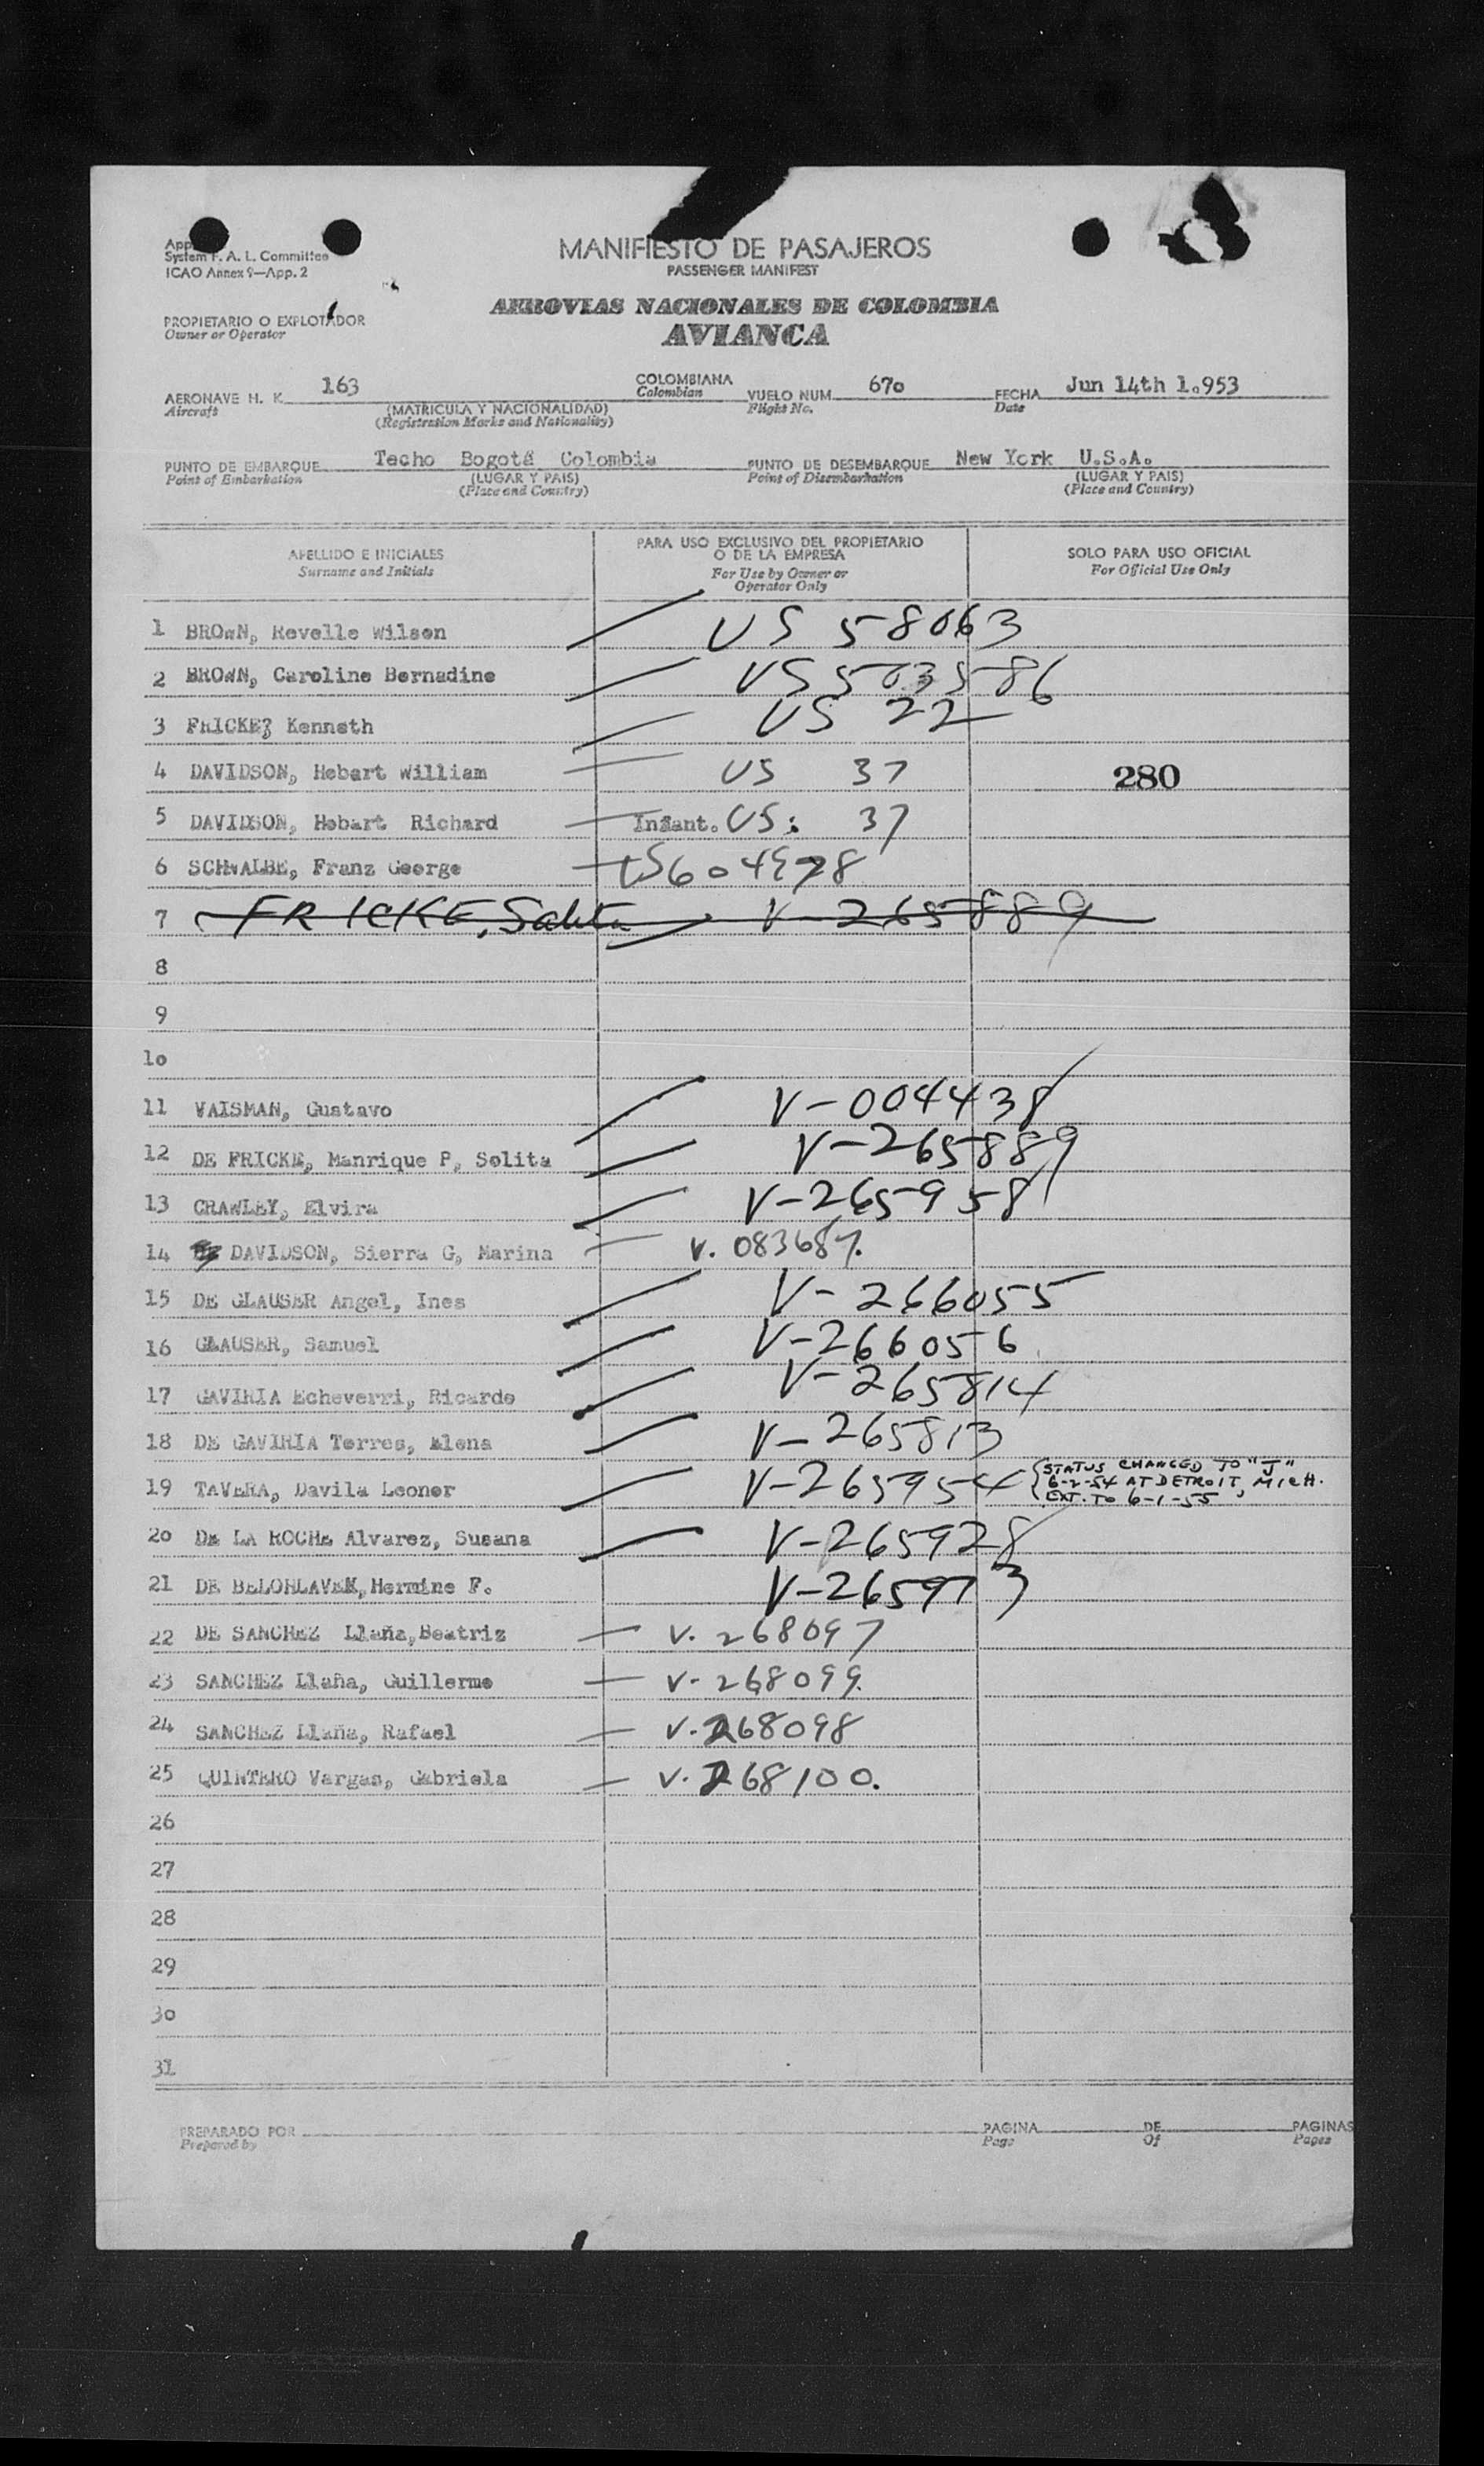 App
System F. A. L. Committee
ICAO Annex 9—App. 2
MANIFIESTO DE PASAJEROS
PASSENGER MANIFEST
AEROVIAS NACIONALES DE COLOMBIA
AVIANCA
PROPIETARIO O EXPLOTADOR
Owner or Operator
AERONAVE H. K. 163 COLOMBIANA VUELO NUM. 67o FECHA Jun 14th 1.953
Aircraft (MATRICULA Y NACIONALIDAD) Colombian Flight No. Date
(Registration Marks and Nationality)
PUNTO DE EMBARQUE Techo Bogotá Colombia PUNTO DE DESEMBARQUE New York U.S.A.
Point of Embarkation (LUGAR Y PAIS) Point of Disembarkation (LUGAR Y PAIS)
(Place and Country) (Place and Country)
APELLIDO E INICIALES PARA USO EXCLUSIVO DEL PROPIETARIO O DE LA EMPRESA SOLO PARA USO OFICIAL
Surname and Initials For Use by Owner or Operator Only For Official Use Only
1 BROWN, Revelle Wilson US 58063
2 BROWN, Caroline Bernadine US 503586
3 FRICKE, Kenneth US 22
4 DAVIDSON, Hebart William US 37 280
5 DAVIDSON, Hobart Richard Infant. US: 37
6 SCHWALBE, Franz George US604978
7 FRICKE, Solita V-265889
8
9
1o
11 VAISMAN, Gustavo V-004438
12 DE FRICKE, Manrique P, Solita V-265889
13 CRAWLEY, Elvira V-265958
14 DAVIDSON, Sierra G, Marina V. 083687.
15 DE GLAUSER Angel, Ines V-266055
16 GLAUSER, Samuel V-266056
17 GAVIRIA Echeverri, Ricardo V-265814
18 DE GAVIRIA Torres, Elena V-265813
19 TAVERA, Davila Leonor V-265954 {STATUS CHANGED TO "J"
6-2-54 AT DETROIT, MICH.
EXT. TO 6-1-55
2o DE LA ROCHE Alvarez, Susana V-265928
21 DE BELOHLAVEK, Hermine F. V-265973
22 DE SANCHEZ Llaña, Beatriz V. 268097
23 SANCHEZ Llaña, Guillermo V-268099.
24 SANCHEZ Llaña, Rafael V.268098
25 QUINTERO Vargas, Gabriela V.268100.
26
27
28
29
3o
31
PREPARADO POR PAGINA DE PAGINAS
Prepared by Page Of Pages